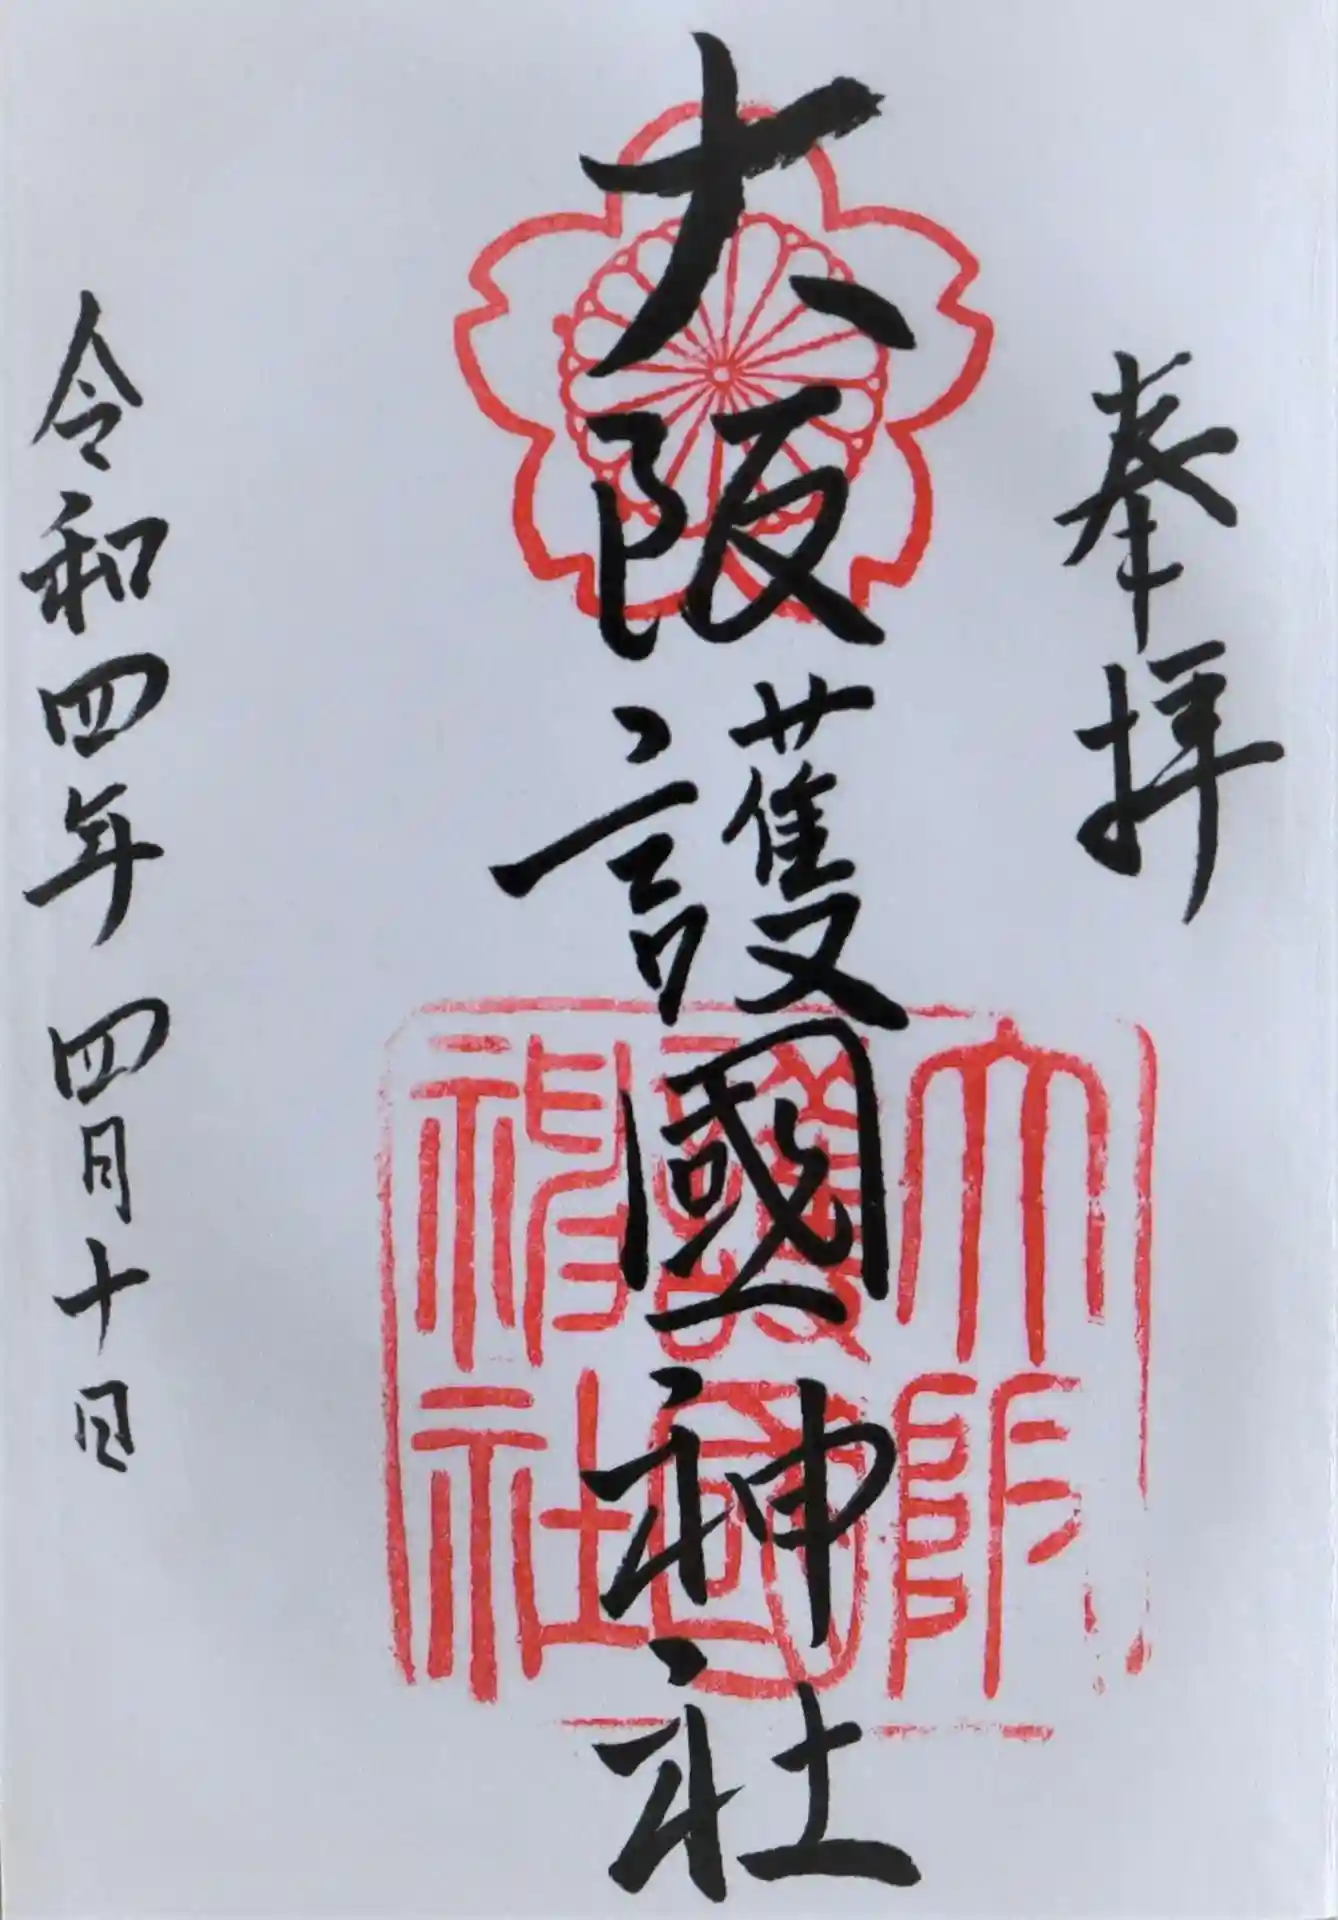 奉拝
大阪護國神社
大阪
護國
神社
令和四年 四月十日